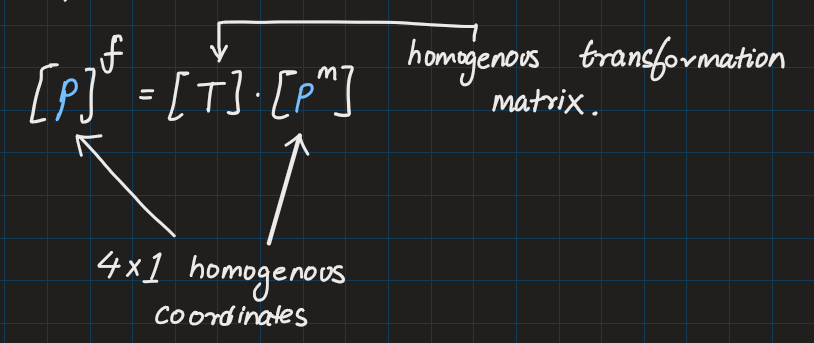 [p]^f = [T] · [p^m]
homogenous transformation
matrix.
4×1 homogenous
coordinates